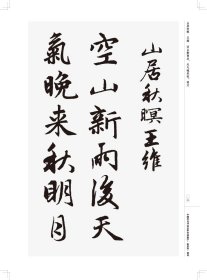 山居秋暝王维
空山新雨後天
氣晚来秋明月